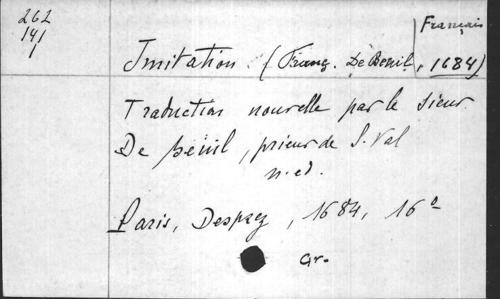 262
141
1
Français
Imitation (Franç. De Beüil, 1684)
Traduction nouvelle par le sieur
De Beüil, prieur de S. Val
n. ed.
Paris, Desprez, 1684, 16°
Gr.